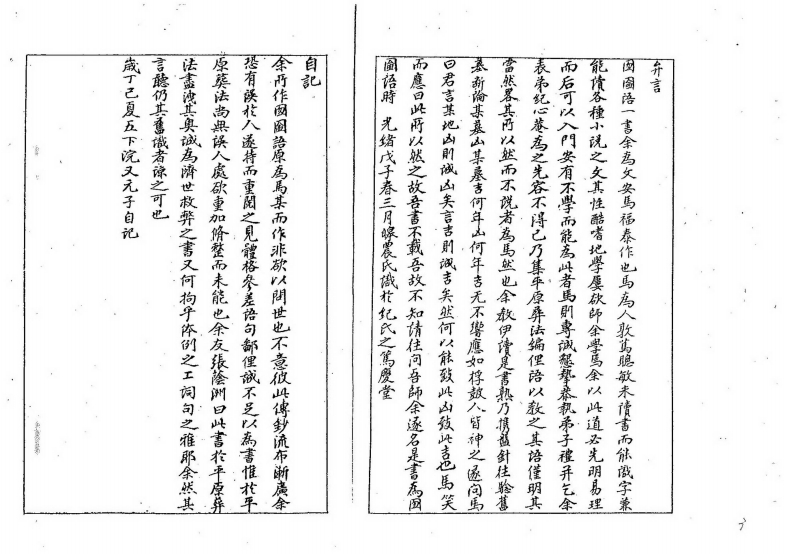 弁言
囫圇語一書余為文安馬福泰作也馬為人敦篤聰敏未讀書而能識字兼
能讀各種小說之文其性酷嗜地學屢欲師余學焉余以此道必先明易理
而后可以入門安有不學而能為此者馬則專誠懇摯恭執弟子禮并乞余
表弟紀心菴為之先容不得已乃集平原葬法編俚語以教之其語僅明其
當然畧其所以然而不說者為馬然也余教伊讀是書熟乃携盤針往騐舊
墓新論某墓凶某墓吉何年凶何年吉无不響應如桴鼓人皆神之遂问馬
曰君言某地凶則誠凶矣言吉則誠吉矣然何以能致此凶致此吉也馬笑
而應曰此所以然之故吾書不載吾故不知請往问吾師余遂名是書為囫
圇語時 光緒戊子春三月 農氏識於紀氏之篤慶堂
自記
余所作囫圇語原為馬某而作非欲以問世也不意彼此傳鈔流布漸廣余
恐有誤於人遂持而重閱之見體格參差語句鄙俚誠不足以為書惟於平
原葬法尚無誤人處欲重加脩整而未能也余友張蔭洲曰此書於平原葬
法盡洩其奥誠為濟世救弊之書又何拘乎体例之工詞句之雅耶余然其
言聽仍其舊識者諒之可也
歲丁巳夏五下浣又元子自記